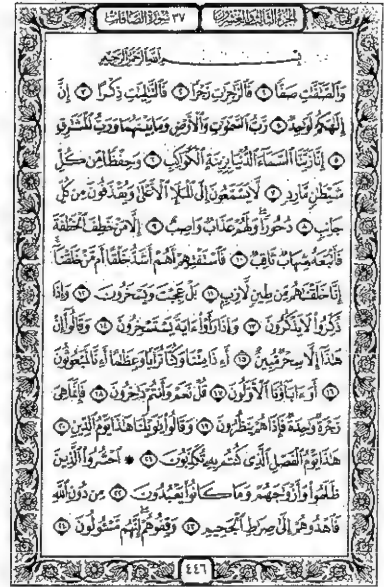 الجزء الثالث والعشرون ٣٧ سورة الصافات
بسم الله الرحمن الرحيم
وَٱلصَّٰٓفَّٰتِ صَفًّا ١ فَٱلزَّٰجِرَٰتِ زَجْرًا ٢ فَٱلتَّٰلِيَٰتِ ذِكْرًا ٣ إِنَّ
إِلَٰهَكُمْ لَوَٰحِدٌ ٤ رَّبُّ ٱلسَّمَٰوَٰتِ وَٱلْأَرْضِ وَمَا بَيْنَهُمَا وَرَبُّ ٱلْمَشَٰرِقِ
٥ إِنَّا زَيَّنَّا ٱلسَّمَآءَ ٱلدُّنْيَا بِزِينَةٍ ٱلْكَوَاكِبِ ٦ وَحِفْظًا مِّن كُلِّ
شَيْطَٰنٍ مَّارِدٍ ٧ لَّا يَسَّمَّعُونَ إِلَى ٱلْمَلَإِ ٱلْأَعْلَىٰ وَيُقْذَفُونَ مِن كُلِّ
جَانِبٍ ٨ دُحُورًا ۖ وَلَهُمْ عَذَابٌ وَاصِبٌ ٩ إِلَّا مَنْ خَطِفَ ٱلْخَطْفَةَ
فَأَتْبَعَهُۥ شِهَابٌ ثَاقِبٌ ١٠ فَٱسْتَفْتِهِمْ أَهُمْ أَشَدُّ خَلْقًا أَم مَّنْ خَلَقْنَآ ۚ
إِنَّا خَلَقْنَٰهُم مِّن طِينٍ لَّازِبٍۭ ١١ بَلْ عَجِبْتَ وَيَسْخَرُونَ ١٢ وَإِذَا
ذُكِّرُوا۟ لَا يَذْكُرُونَ ١٣ وَإِذَا رَأَوْا۟ ءَايَةً يَسْتَسْخِرُونَ ١٤ وَقَالُوٓا۟ إِنْ
هَٰذَآ إِلَّا سِحْرٌ مُّبِينٌ ١٥ أَءِذَا مِتْنَا وَكُنَّا تُرَابًا وَعِظَٰمًا أَءِنَّا لَمَبْعُوثُونَ
١٦ أَوَءَابَآؤُنَا ٱلْأَوَّلُونَ ١٧ قُلْ نَعَمْ وَأَنتُمْ دَٰخِرُونَ ١٨ فَإِنَّمَا هِىَ
زَجْرَةٌ وَٰحِدَةٌ فَإِذَا هُمْ يَنظُرُونَ ١٩ وَقَالُوا۟ يَٰوَيْلَنَا هَٰذَا يَوْمُ ٱلدِّينِ ٢٠
هَٰذَا يَوْمُ ٱلْفَصْلِ ٱلَّذِى كُنتُم بِهِۦ تُكَذِّبُونَ ٢١ ۞ ٱحْشُرُوا۟ ٱلَّذِينَ
ظَلَمُوا۟ وَأَزْوَٰجَهُمْ وَمَا كَانُوا۟ يَعْبُدُونَ ٢٢ مِن دُونِ ٱللَّهِ
فَٱهْدُوهُمْ إِلَىٰ صِرَٰطِ ٱلْجَحِيمِ ٢٣ وَقِفُوهُمْ ۖ إِنَّهُم مَّسْـُٔولُونَ ٢٤
٤٤٦